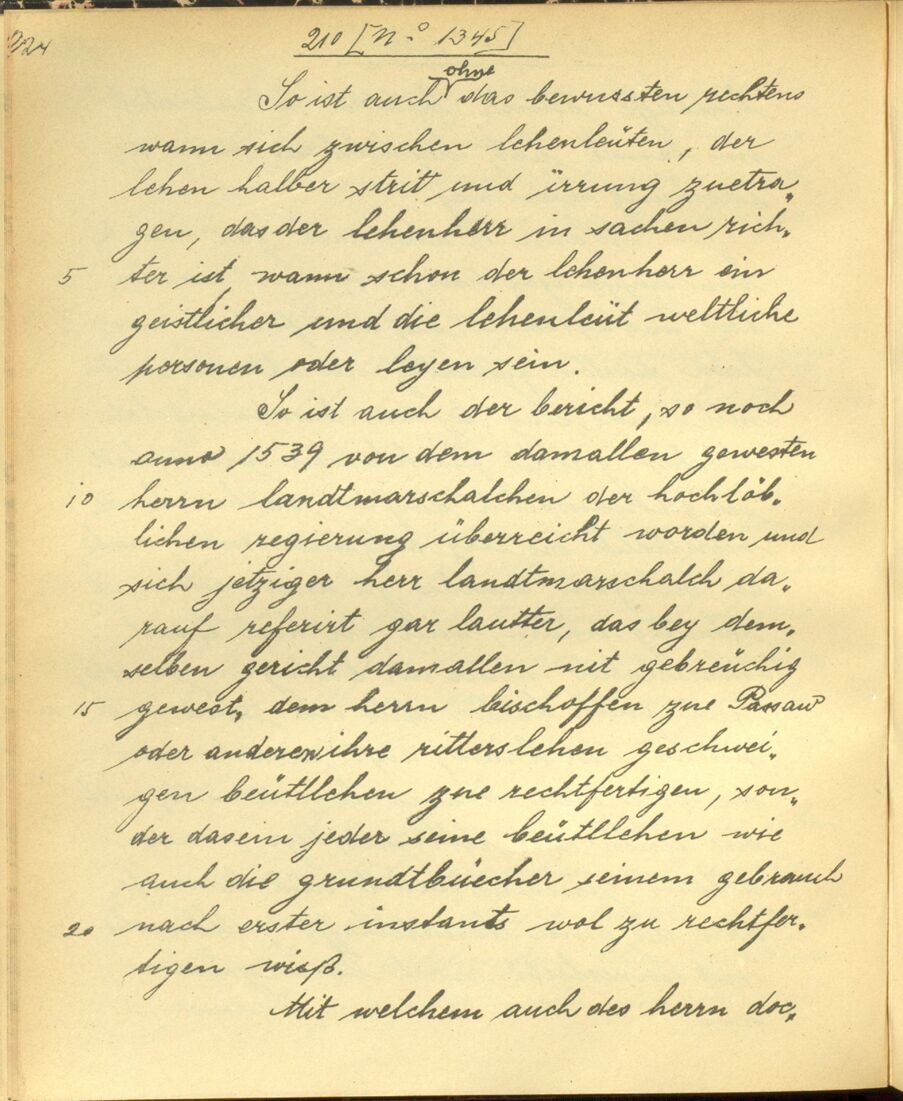 224
210 [No 1345]
ohne
So ist auch das bewussten rechtens
wann sich zwischen lehenleüten, der
lehen halber strit und ürrung zuetra„
gen, das der lehenherr in sachen rich„
5 ter ist, wann schon der lehenherr ein
geistlicher und die lehenleüt weltliche
personen oder leyen sein.
So ist auch der bericht, so noch
anno 1539 von dem damallen gewesten
10 herrn landtmarschalchen der hochlöb„
lichen regierung überreicht worden und
sich jetziger herr landtmarschalch da„
rauf referirt gar lautter, das bey dem„
selben gericht damallen nit gebreüchig
15 gewest, dem herrn bischoffen zue Passaw
oder anderen ihre ritterslehen geschwei„
gen beütllehen zue rechtfertigen, son„
der dasein jeder seine beütllehen wie
auch die grundtbüecher seinem gebrauch
20 nach erster instants wol zu rechtfer„
tigen wisβ.
Mit welchem auch des herrn doc„